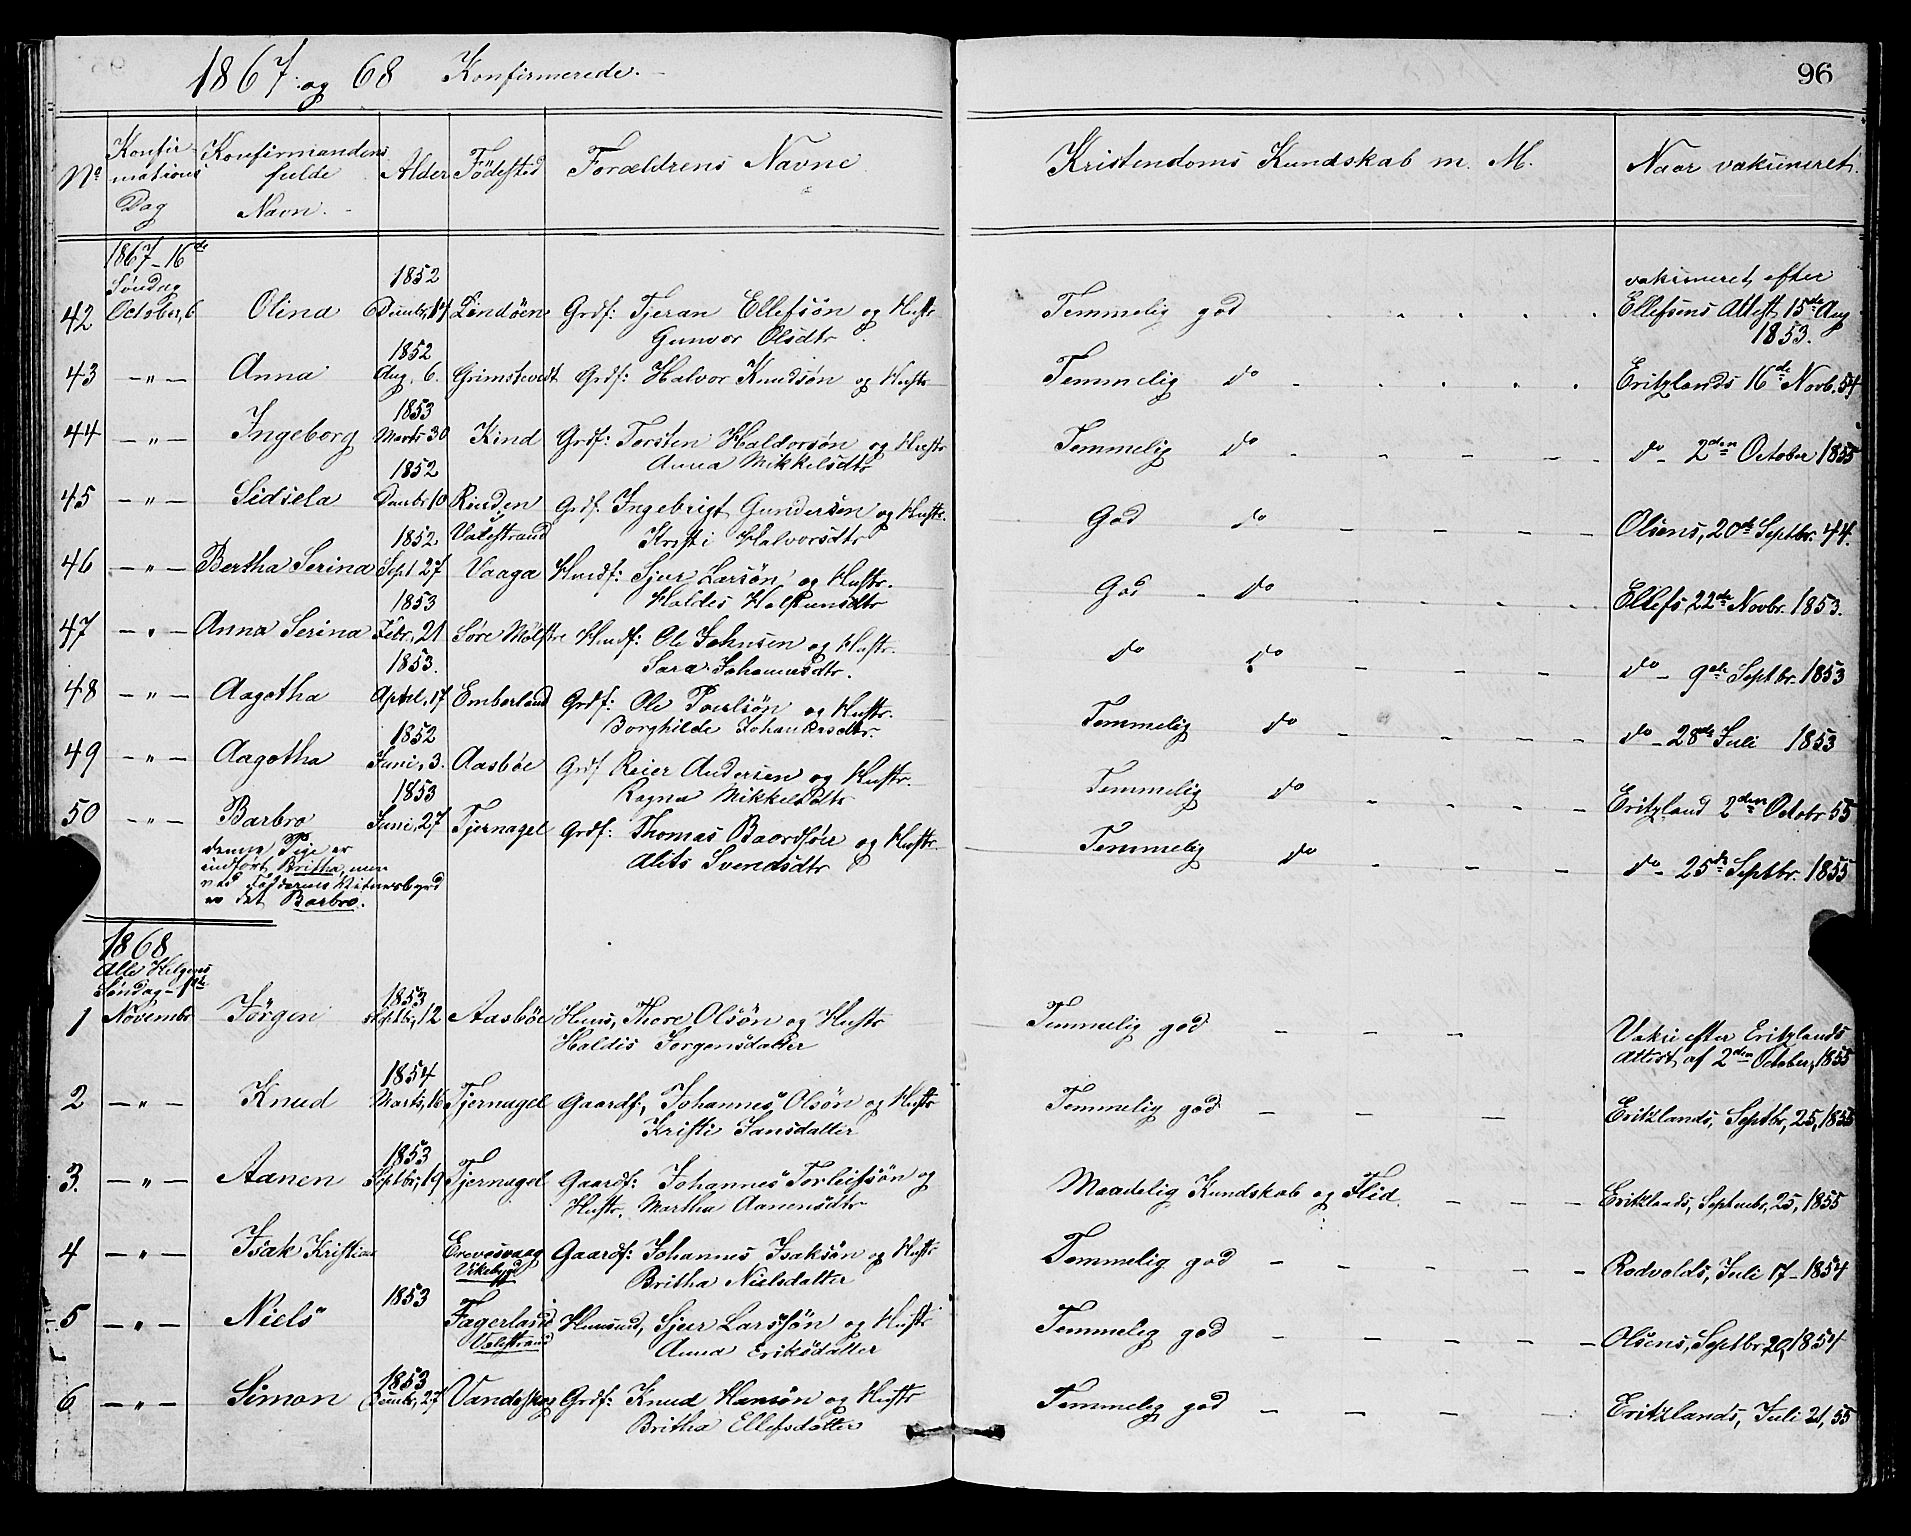 1867 og 68 Konfirmerede.
96
No | Konfirmations Dag | Konfirmandens fulde Navn. | Alder | Födested | Forældrens Navne | Kristendoms Kundskab m. M. | Naar vakcineret.
1867 - 16de Söndag
42 October, 6 Olina 1852 Decmbr, 14 Lindöen Grdf: Tjeran Ellefsön og Hustr Gunvor Olsdtr Temmelig god vakcineret efter Ellefsens Attest 15de Aug 1853.
43 — " — Anna 1852 Aug. 6. Grimstvedt Grdf: Halvor Knudsön og Hustr Temmelig do Eritzlands 16de Novb. 54
44 — " — Ingeborg 1853 Marts 30 Kind Grdf: Torsten Haldorsön og Hustr Anna Mikkelsdtr Temmelig do do - 2den October 1855
45 — " — Sidsela 1852 Decmbr 10 Valestrand Grdf. Ingebrigt Gundersen og Hustr. Kristi Halvorsdtr God do Olsens, 20de Septbr. 44.
46 — " — Bertha Serina 1852 Sept 27 Vaaga Husdf: Sjur Larsön og Hustr. Haldis dtr God do Ellefs 22de Novbr. 1853.
47 — " — Anna Serina 1853 Febr, 21 Söre Mölstre Husdf: Ole Johnsen og Hustr. Sara Johannesdtr. do do do - 9de Septbr. 1853
48 — " — Aagotha 1853. April, 17 Emberland Grdf: Ole Poulsön og Hustr. Borghilde dtr. Temmelig do do - 28de Juli 1853
49 — " — Aagotha 1852 Juni, 3. Aasböe Grdf Reier Andersen og Hustr. Ragna Mikkelsdtr Temmelig do Eritzland 2den Octobr 55
50 — " — Barbro 1853 Juni, 27 Tjernagel Grdf: Thomas og Hustr. Alits Svendsdtr Temmelig do do - 25de Septbr. 1855
denne Pige er
indfört Britha, men
ved
er det Barbro.
1868
Alle Helgens
Söndag - 1ste
1 Novembr Jörgen 1853 Septbr, 12 Aasböe Huus, Thore Olsön og Hustr Haldis Jörgensdatter Temmelig god Vakci efter Eritzlands Attest af 2den October, 1855
2 — " — Knud 1854 Marts, 16 Tjernagel Gaardf, Johannes Olsön og Hustr Kristi Jansdatter Temmelig god Eritzlands, Septbr, 25, 1855
3. — " — Aanen 1853 Septbr, 19 Tjernagel Gaardf: Johannes Torleifsön og Hustr. Martha Aanensdtr Maadelig Kundskab og Flid. Eritzlands, Septmbr, 25, 1855
4 — " — Isak Kristian Erevesvaag Vikebygd Gaardf: Johannes Isaksön og Hustr Britha Nielsdatter Temmelig god Rodvolds, Juli 17 - 1854
5 — " — Niels 1853 Fagerland Valestrand Huusmd, Sjur Larssön og Hustr Anna Eriksdatter Temmelig god Olsens, Septbr, 20, 1854
6 — " — Simon 1853 Decmbr, 27 Vandaskog Grdf: Knud Hansön og Hustr Britha Ellefsdatter Temmelig god Eritzlands, Juli 21, 55